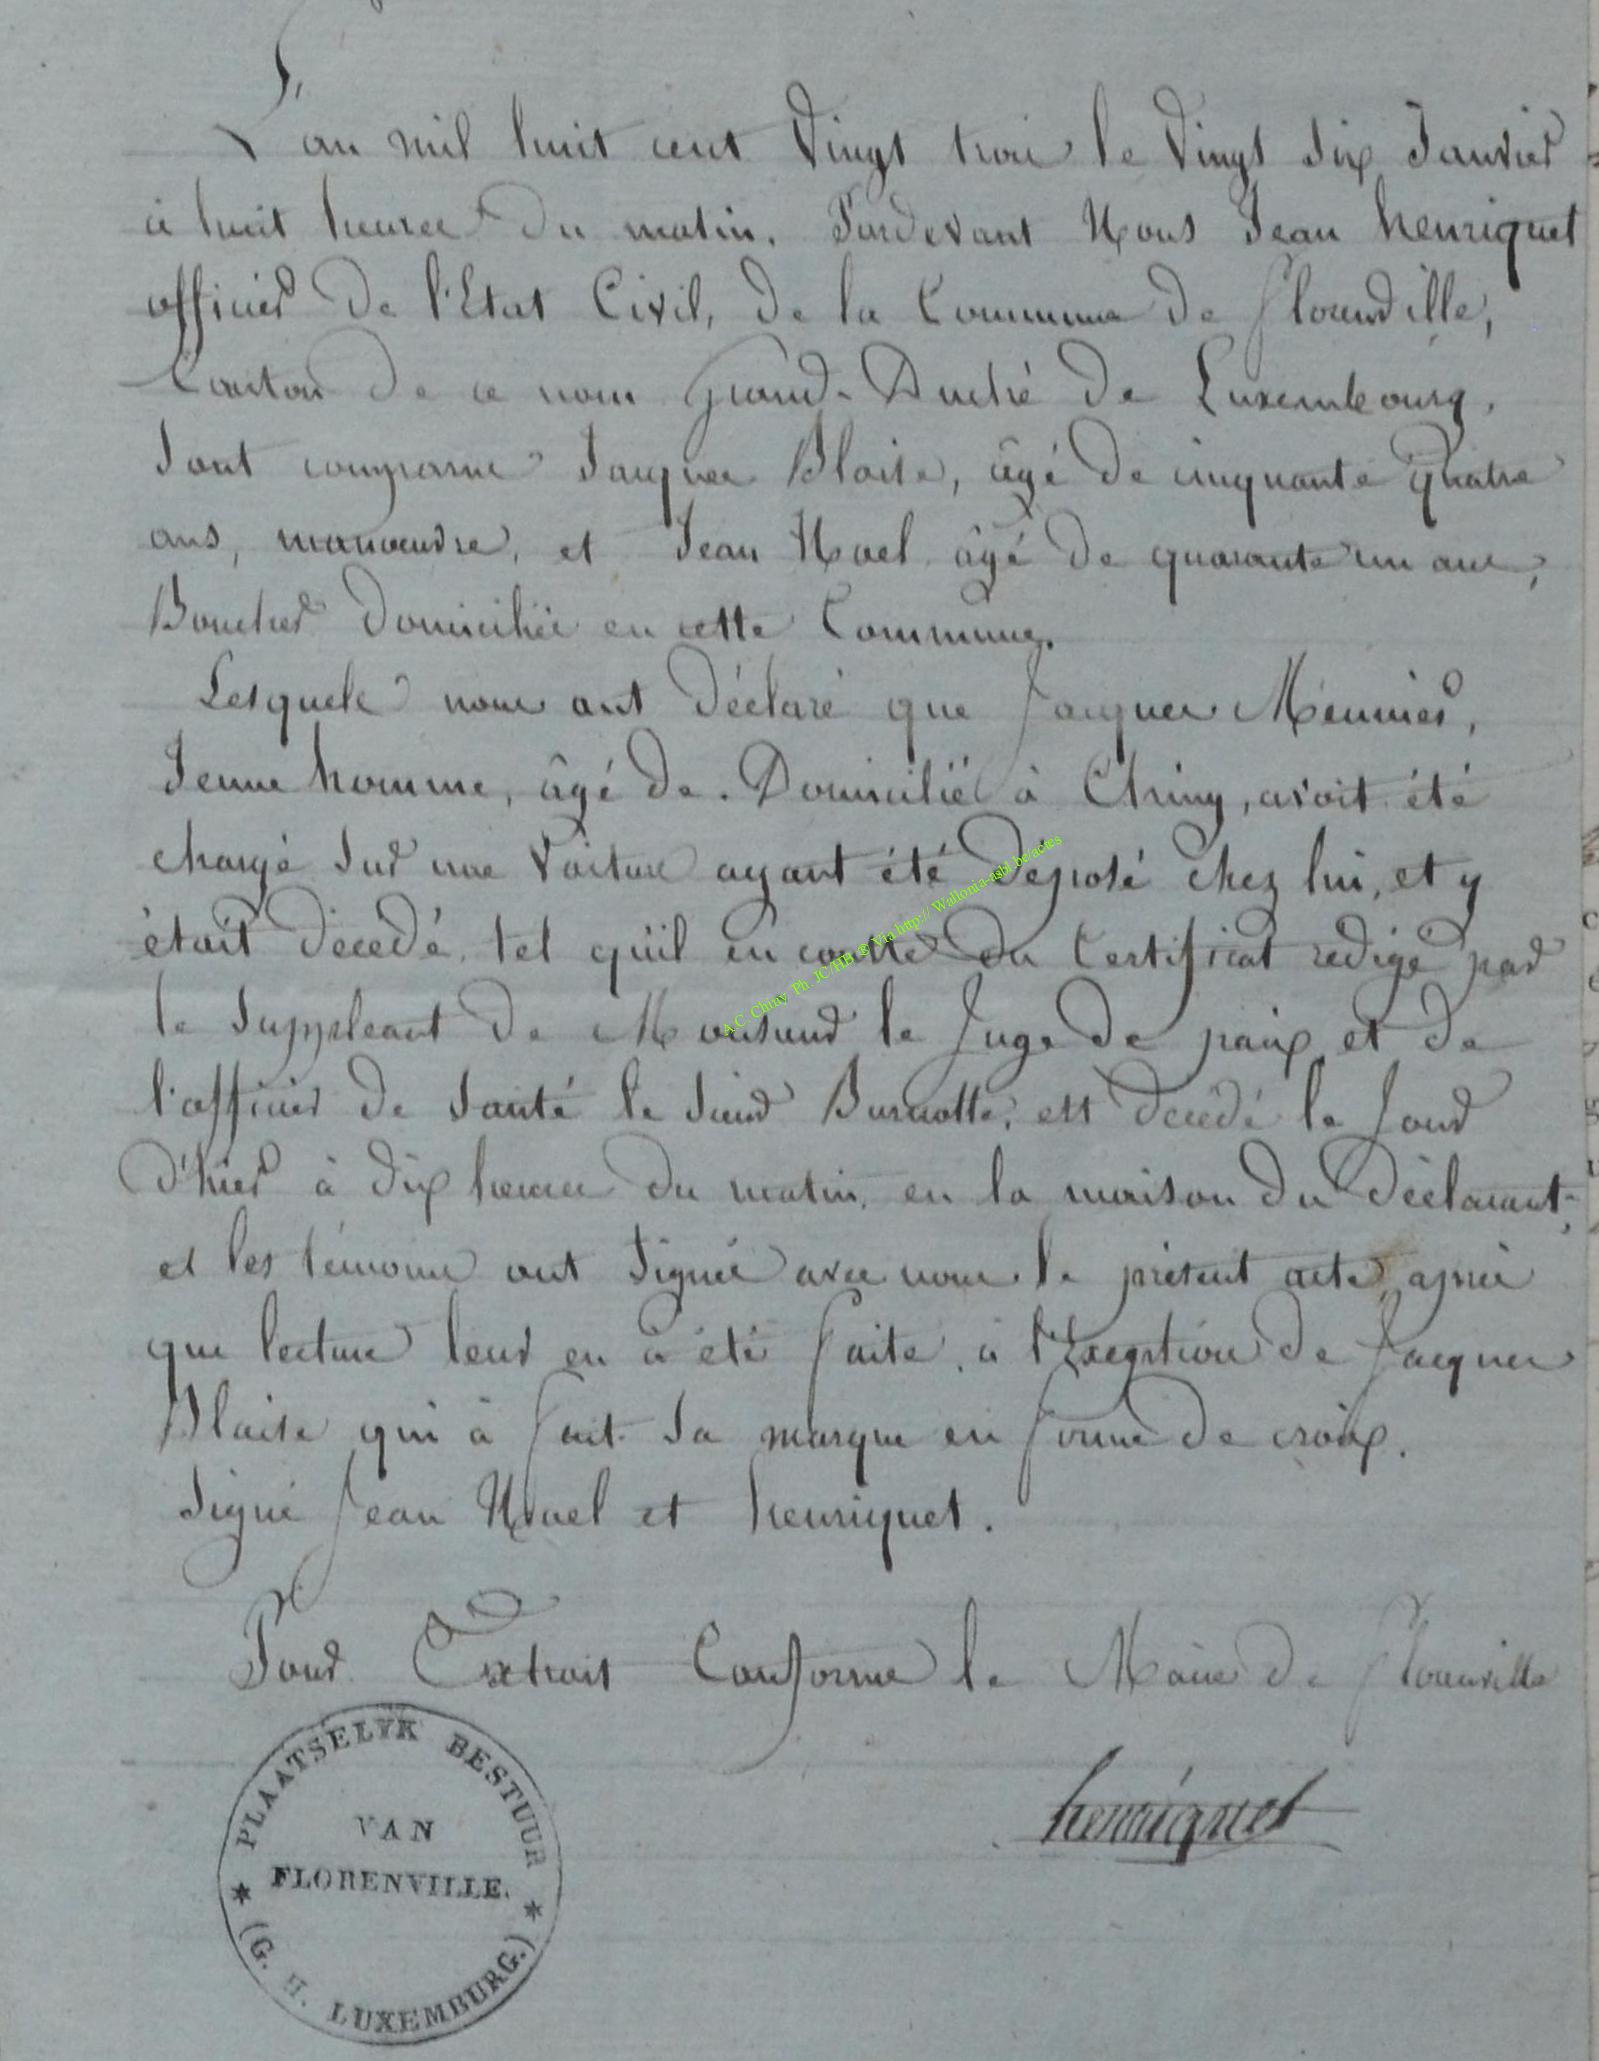 L'an mil huit cent Vingt trois le Vingt Six Janvier
à huit heures du matin. Pardevant Nous Jean henriquet
officier De l'Etat Civil, De la Commune De florenville,
Canton De ce nom Grand-Duché De Luxembourg,
Sont comparus Jacques Blaise, âgé De cinquante quatre
ans, manoeuvre, et Jean Noel âgé De quarante un ans,
Boucher Domiciliés en cette Commune.
Lesquels nous ont Déclaré que Jacques Meunier,
Jeune homme, âgé De . Domicilié à Chiny, avoit été
chargé Sur une Voiture ayant été Déposé chez lui, et y
étoit Décédé, tel qu'il en conste Du Certificat redigé par
le Suppleant De Monsieur le Juge De paix et De
l'officier De Santé le Sieur Burnotte, est Décédé le Jour
D'hier à Dix heures Du matin, en la maison Du Déclarant;
et les témoins ont Signés avec nous le présent acte après
que lecture leur en à été faite, à l'Exception De Jacques
Blaise qui à fait Sa marque en forme De croix.
Signé Jean Noel et henriquet.
Pour Extrait Conforme le Maire De florenville
henriquet
PLAATSELYK BESTUUR
VAN
FLORENVILLE.
(G. H. LUXEMBURG.)
A.C. Chiny Ph. JC/HB ® Via http:// Wallonia-asbl.be/actes